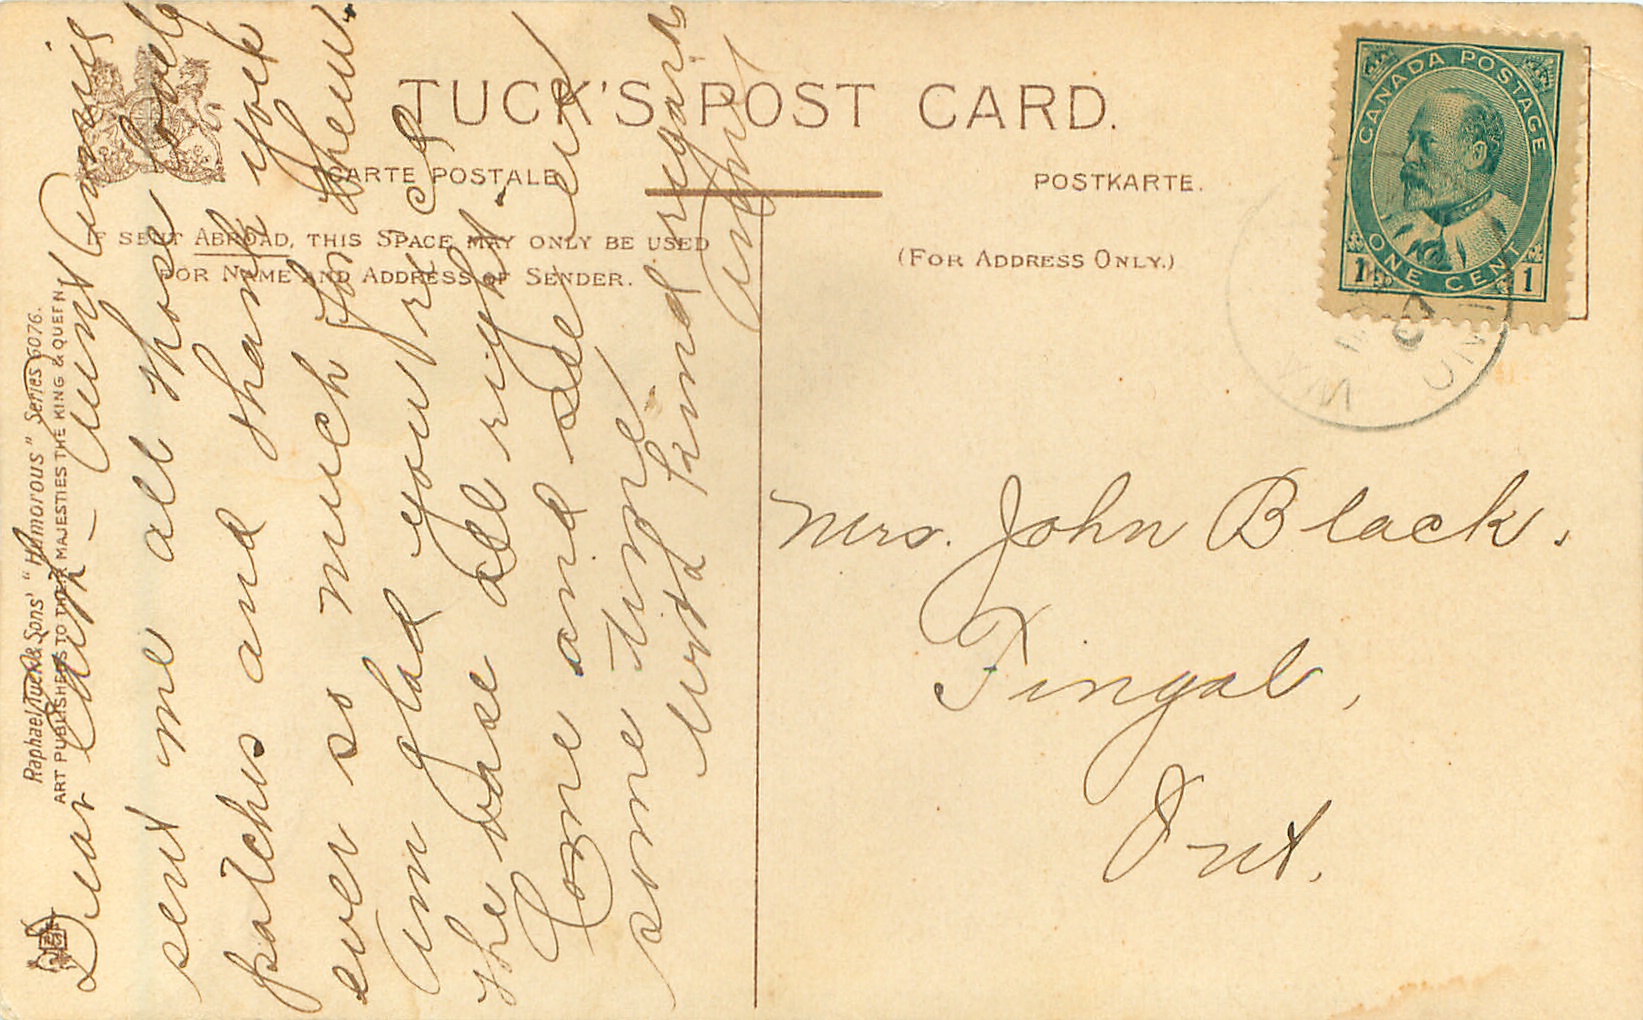 TUCK'S POST CARD.
CARTE POSTALE
POSTKARTE.
IF SENT ABROAD, THIS SPACE MAY ONLY BE USED
FOR NAME AND ADDRESS OF SENDER.
(FOR ADDRESS ONLY.)
Raphael Tuck & Sons' "Humorous" Series 6076.
ART PUBLISHERS TO THEIR MAJESTIES THE KING & QUEEN
Dear – Aunt Annie
sent me all those lovely
patches and thank you
ever so much for them.
Am glad you rec'd
the vase all right.
Come and see us
some time
with kind regards
CANADA POSTAGE
ONE CENT
1 1
07
Mrs. John Black.
Fingal,
Ont.